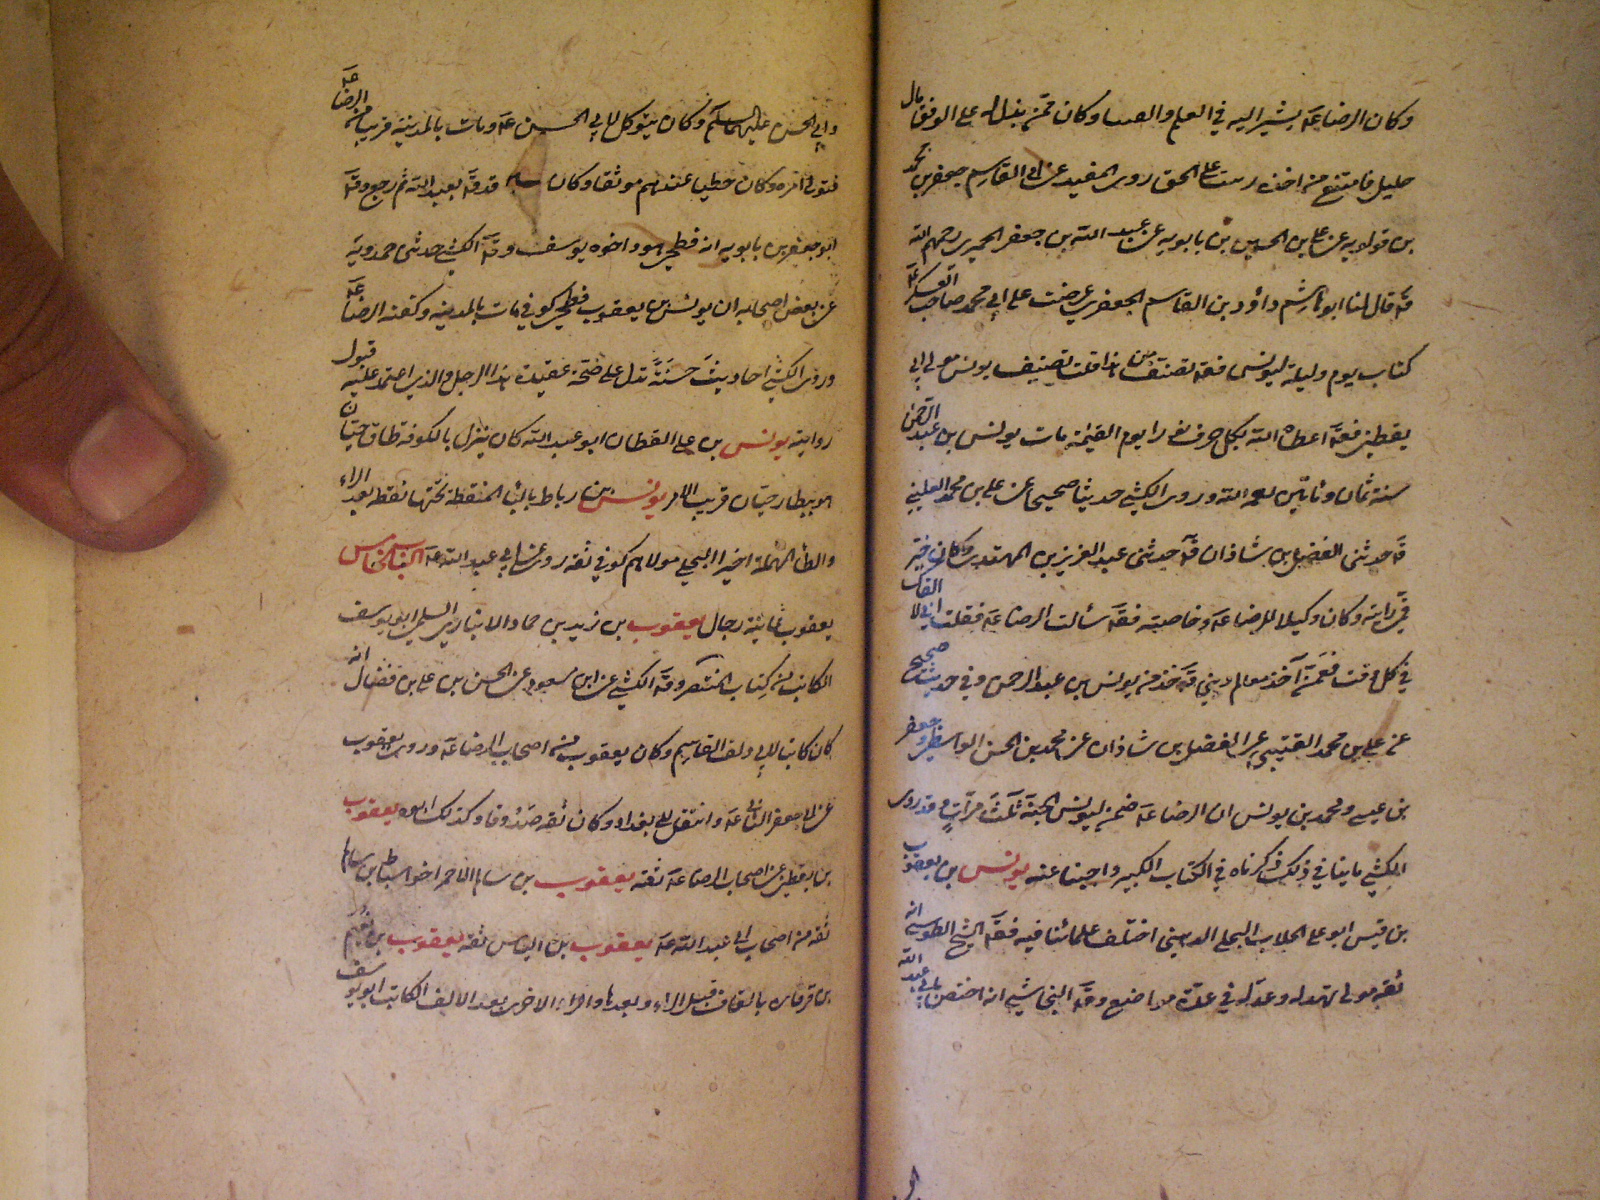 وكان الرضا عه يشير اليه في العلم والفتيا وكان ممن بذل له على الوقف مال
جليل فامتنع من اخذه وثبت على الحق روى المفيد عن ابي القاسم جعفر بن محمد
بن قولويه عن علي بن الحسين بن بابويه عن عبد الله بن جعفر الحميري رحمهم الله
قه قال لنا ابو هاشم داود بن القاسم الجعفري عرضت على ابي محمد صاحب العسكر عه
كتاب يوم وليلة ليونس فقه تصنيف من هذا قلت تصنيف يونس مولى ال
يقطين فقه اعطاه الله بكل حرف نورا يوم القيمة مات يونس بن عبد الرحمن
سنة ثمان ومأتين رحمه الله وروى الكشي حديثا صحيحا عن علي بن محمد القتيبي
قه حدثنى الفضل بن شاذان قه حدثنى عبد العزيز بن المهتدى وكان خير
قمي رايته وكان وكيلا للرضا عه وخاصته فقه سألت الرضا عه فقلت اني لا القاك
في كل وقت فعمن آخذ معالم ديني قه خذ من يونس بن عبد الرحمن وفي حديث صحيح
عن علي بن محمد القتيبي عن الفضل بن شاذان عن محمد بن الحسن الواسطي وجعفر
بن عيسى ومحمد بن يونس ان الرضا عه ضمن ليونس الجنة ثلث مرات وقد روى
الكشي ما ينافي ذلك ذكرناه في الكتاب الكبير واجبنا عنه يونس بن يعقوب
بن قيس ابو علي الجلاب البجلي الدهني اختلف علمائنا فيه فقه الشيخ الطوسي انه
ثقة مولى له وعدله في عدة مواضع وقه النجاشي انه اختص بابي عبد الله
وابي الحسن عليهما السلم وكان يتوكل لابي الحسن عه ومات بالمدينة قريبا من الرضا عه
فتولى امره وكان حظيا عندهم موثقا وكان قد قه بعبد الله ثم رجع وقه
ابو جعفر بن بابويه انه فطحي هو واخوه يوسف وقه الكشي حدثنى حمدويه
عن بعض اصحابه ان يونس بن يعقوب فطحي كوفي مات بالمدينة وكفنه الرضا عه
وروى الكشي احاديث حسنة تدل على صحة عقيدة هذا الرجل والذي اعتمد عليه قبول
روايته يونس بن علي القطان ابو عبد الله كان ينزل بالكوفة طاق حيان
قريب الامر يونس بن رباط بالياء المنقطة تحتها نقطة بعد الراء
والطاء المهملة اخيرا البجلي مولاهم كوفي ثقة روى عن ابي عبد الله عه الباب الخامس
يعقوب ثمانية رجال يعقوب بن يزيد بن حماد الانباري السلمي ابو يوسف
الكاتب من كتاب المنتصر وقه الكشي عن ابن مسعود عن الحسن بن علي بن فضال انه
كان كاتبا لابي دلف القاسم وكان يعقوب من اصحاب الرضا عه وروى يعقوب
عن ابي جعفر الثاني عه وانتقل الى بغداد وكان ثقة صدوقا وكذلك ابوه يعقوب
بن يقطين من اصحاب الرضا عه ثقة يعقوب بن سالم الاحمر اخو اسباط بن سالم
ثقة من اصحاب ابي عبد الله عه يعقوب بن الياس ثقة يعقوب بن نعيم
بن قرقارة بالقاف قبل الراء وبعدها والراء الاخرى بعد الالف الكاتب ابو يوسف